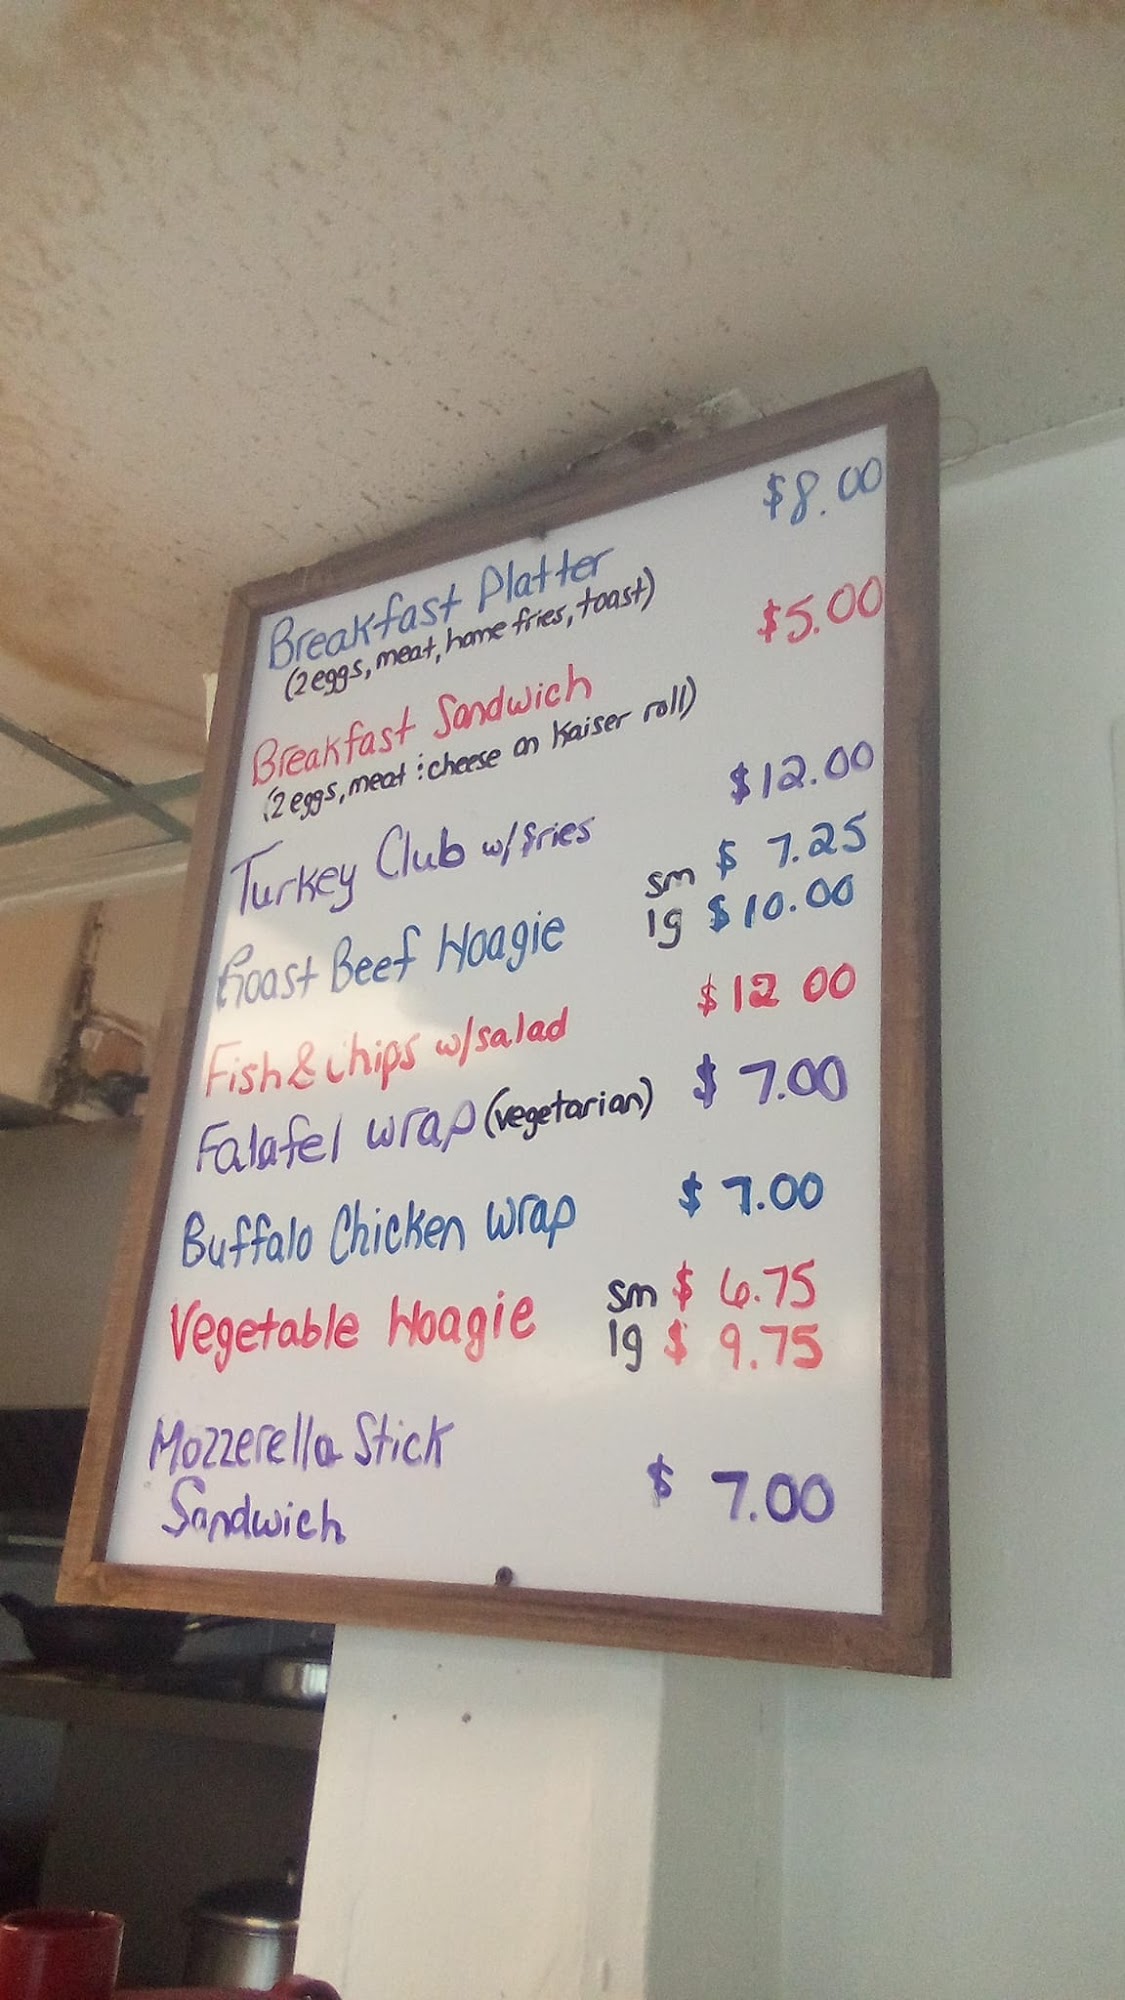 Breakfast Platter $8.00
(2 eggs, meat, home fries, toast)
Breakfast Sandwich $5.00
(2 eggs, meat & cheese on Kaiser roll)
Turkey Club w/fries $12.00
Roast Beef Hoagie sm $ 7.25
lg $10.00
Fish & Chips w/salad $12 00
Falafel wrap (vegetarian) $ 7.00
Buffalo Chicken wrap $ 7.00
Vegetable Hoagie sm $ 6.75
lg $ 9.75
Mozzerella Stick
Sandwich $ 7.00